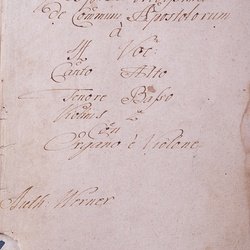 de Communi Apostolorum
à
4 Voc:
Canto Alto
Tenore Basso
Violinis 2
Con
Organo è Violone
Auth: Werner